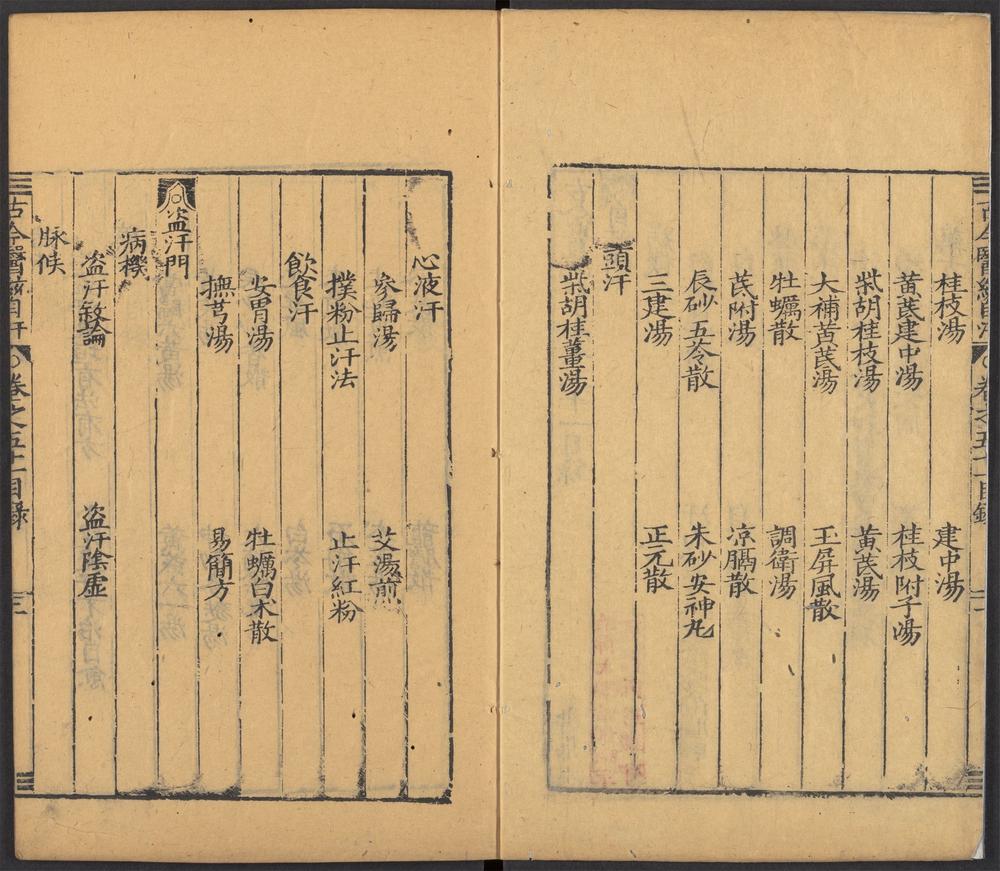 桂枝湯 建中湯
黄茋建中湯 桂枝附子湯
柴胡桂枝湯 黄茋湯
大補黄茋湯 玉屏風散
牡蠣散 調衛湯
茋附湯 凉膈散
辰砂五苓散 朱砂安神丸
三建湯 正元散
頭汗
柴胡桂薑湯
心液汗
參歸湯 艾湯煎
撲粉止汗法 止汗紅粉
飲食汗
安胃湯 牡蠣白术散
撫芎湯 易簡方
盗汗門
病機
盗汗敘論 盗汗陰虛
脉候
卷之五十一目錄